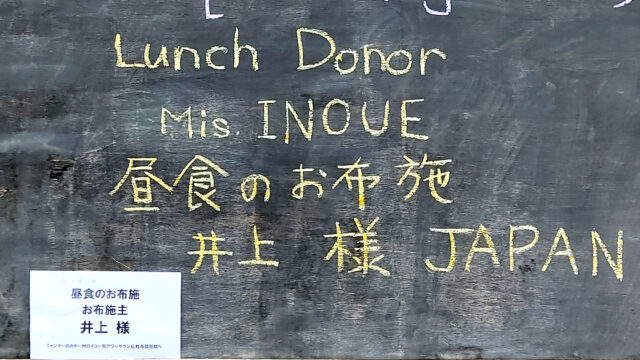 Lunch Donor
Mis. INOUE
昼食のお布施
井上 様 JAPAN
昼食のお布施
お布施主
井上 様